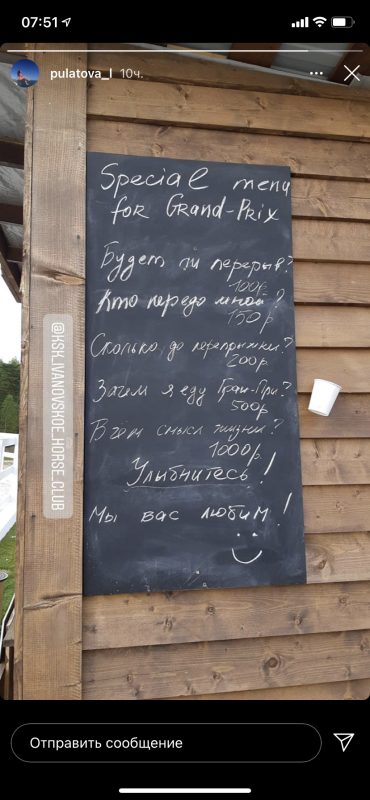 07:51
pulatova_l 10ч.
Special menu
for Grand-Prix
Будет ли перерыв?
100р
Кто передо мной?
150р
Сколько до перепрыжки?
200р.
Зачем я еду Гран-При?
500р
В чем смысл жизни?
1000р.
Улыбнитесь!
Мы вас любим!
@KSK_IVANOVSKOE_HORSE_CLUB
Отправить сообщение